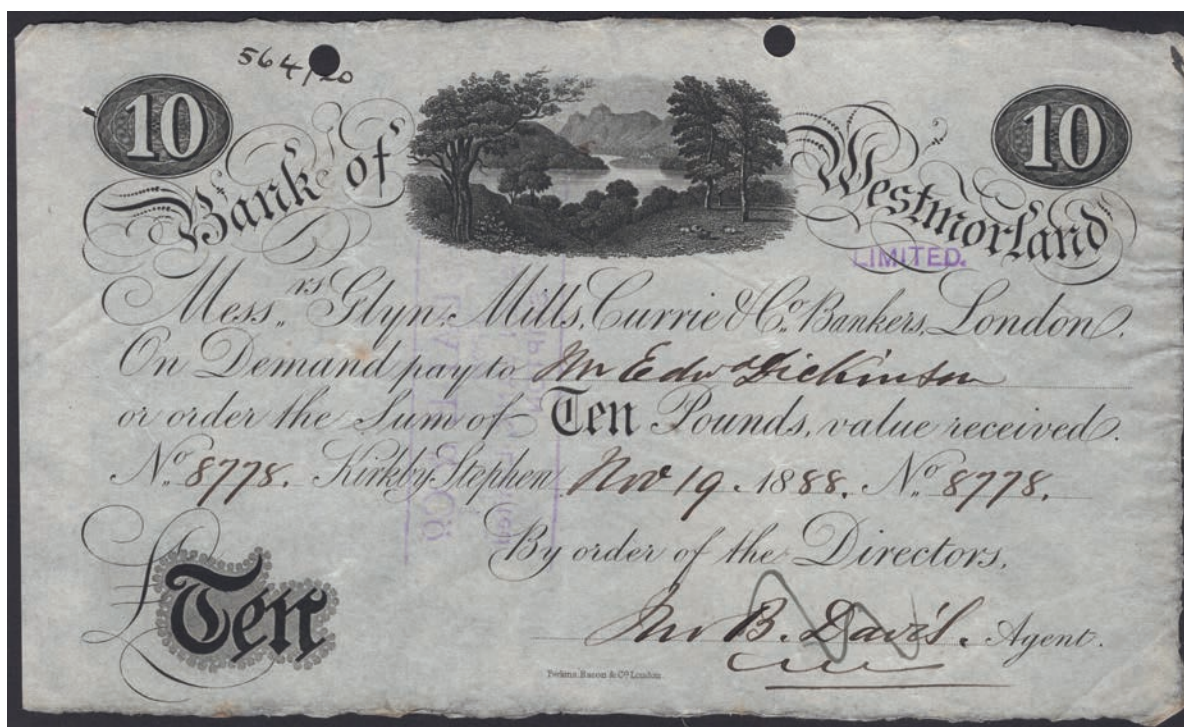 564/20
10 10
Bank of Westmorland
LIMITED.
Mess.rs Glyn, Mills, Currie & Co. Bankers, London.
On Demand pay to Mr Edwd Dickinson
or order the Sum of Ten Pounds, value received.
No. 8778. Kirkby Stephen Nov 19 1888. No. 8778.
By order of the Directors,
£Ten
Jno B. Davis. Agent.
Perkins, Bacon & Co. London